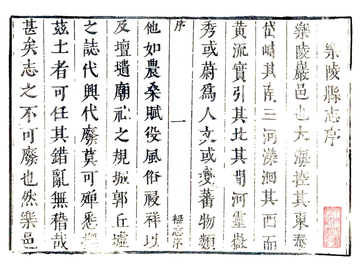 樂陵縣志序
樂陵巖邑也大海控其東泰
岱峙其南三河濚洄其西而
黃流實引其北其間河靈嶽
秀或蔚爲人文或變蕃物類
序
一
楊志序
他如農桑賦役風俗禨祥以
及壇壝廟祀之規城郭丘墟
之誌代興代廢莫可殫悉
茲土者可任其錯亂無稽哉
甚矣志之不可廢也然樂邑